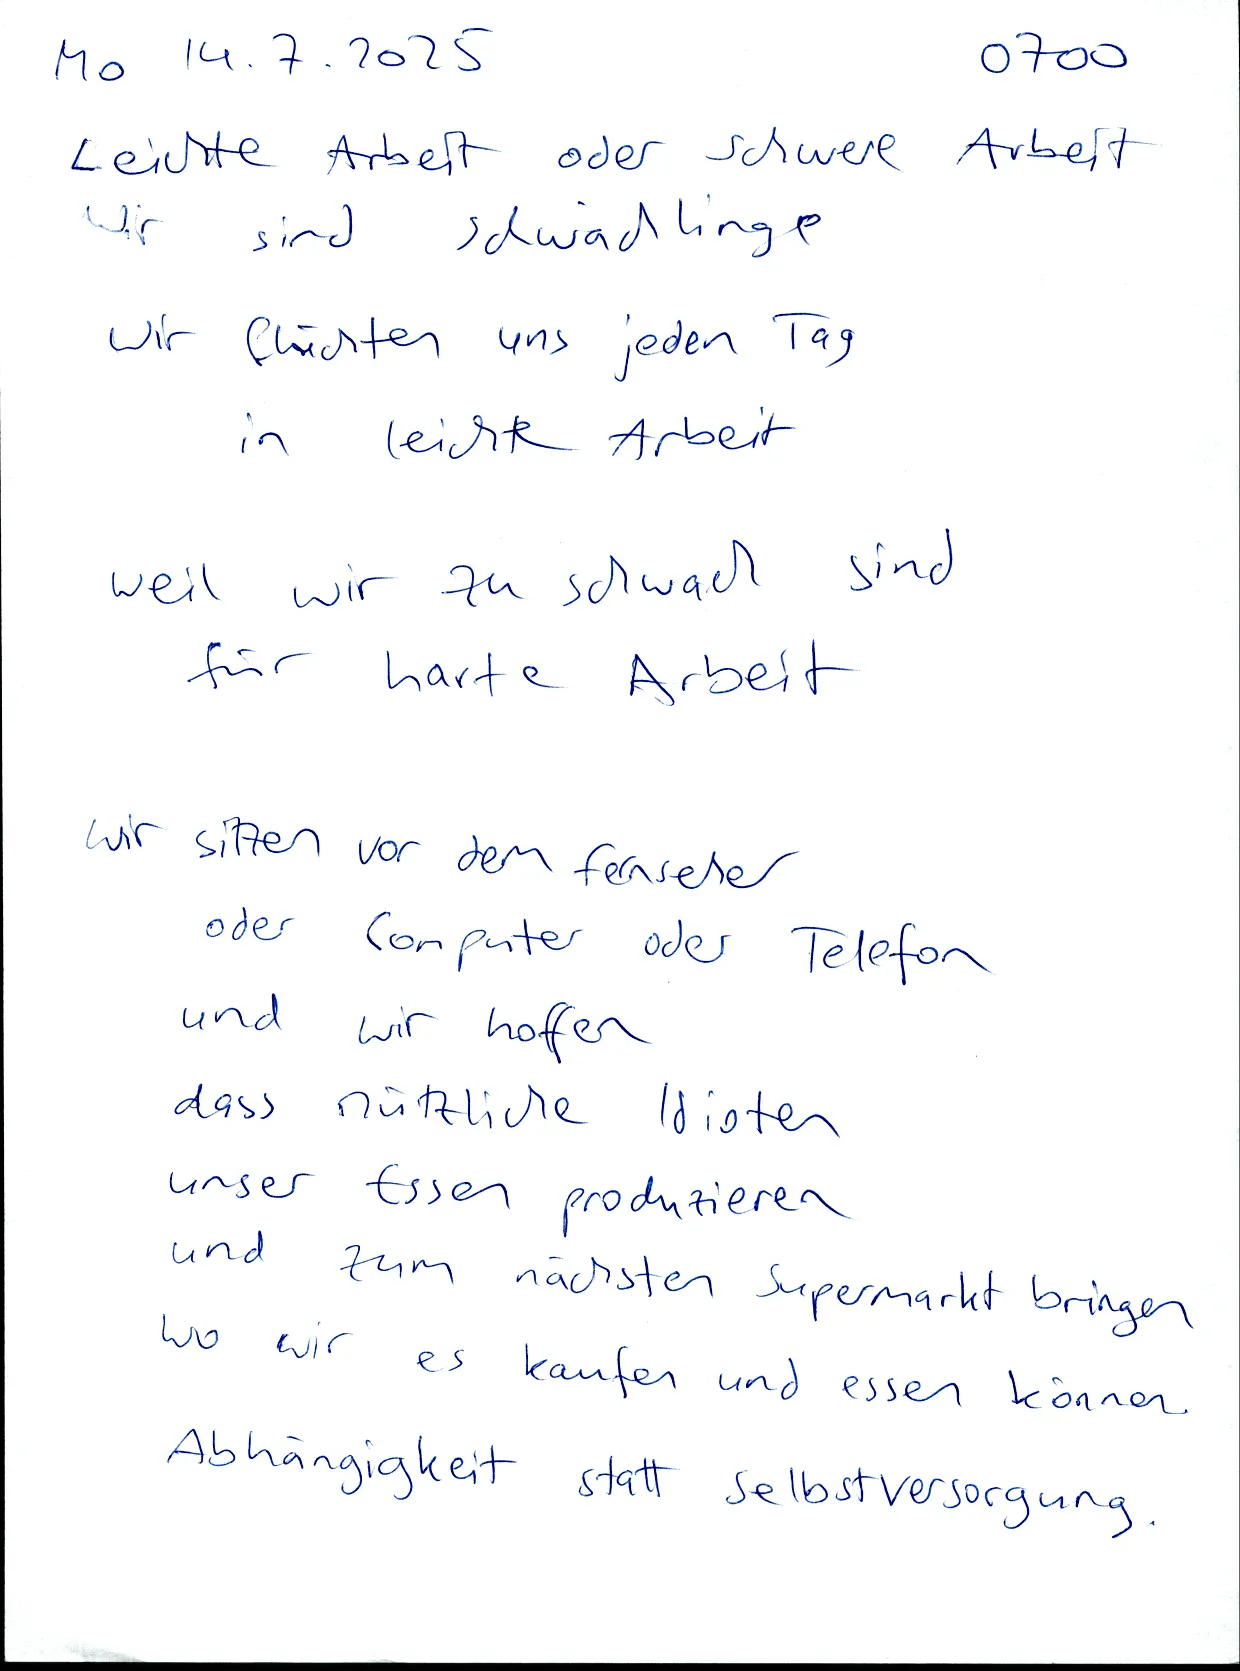 Mo 14.7.2025 0700
Leichte Arbeit oder schwere Arbeit
Wir sind schwächlinge
wir flüchten uns jeden Tag
in leichte Arbeit
weil wir zu schwach sind
für harte Arbeit
wir sitzen vor dem fernseher
oder Computer oder Telefon
und wir hoffen
dass nützliche Idioten
unser Essen produzieren
und zum nächsten Supermarkt bringen
wo wir es kaufen und essen können.
Abhängigkeit statt selbstversorgung.